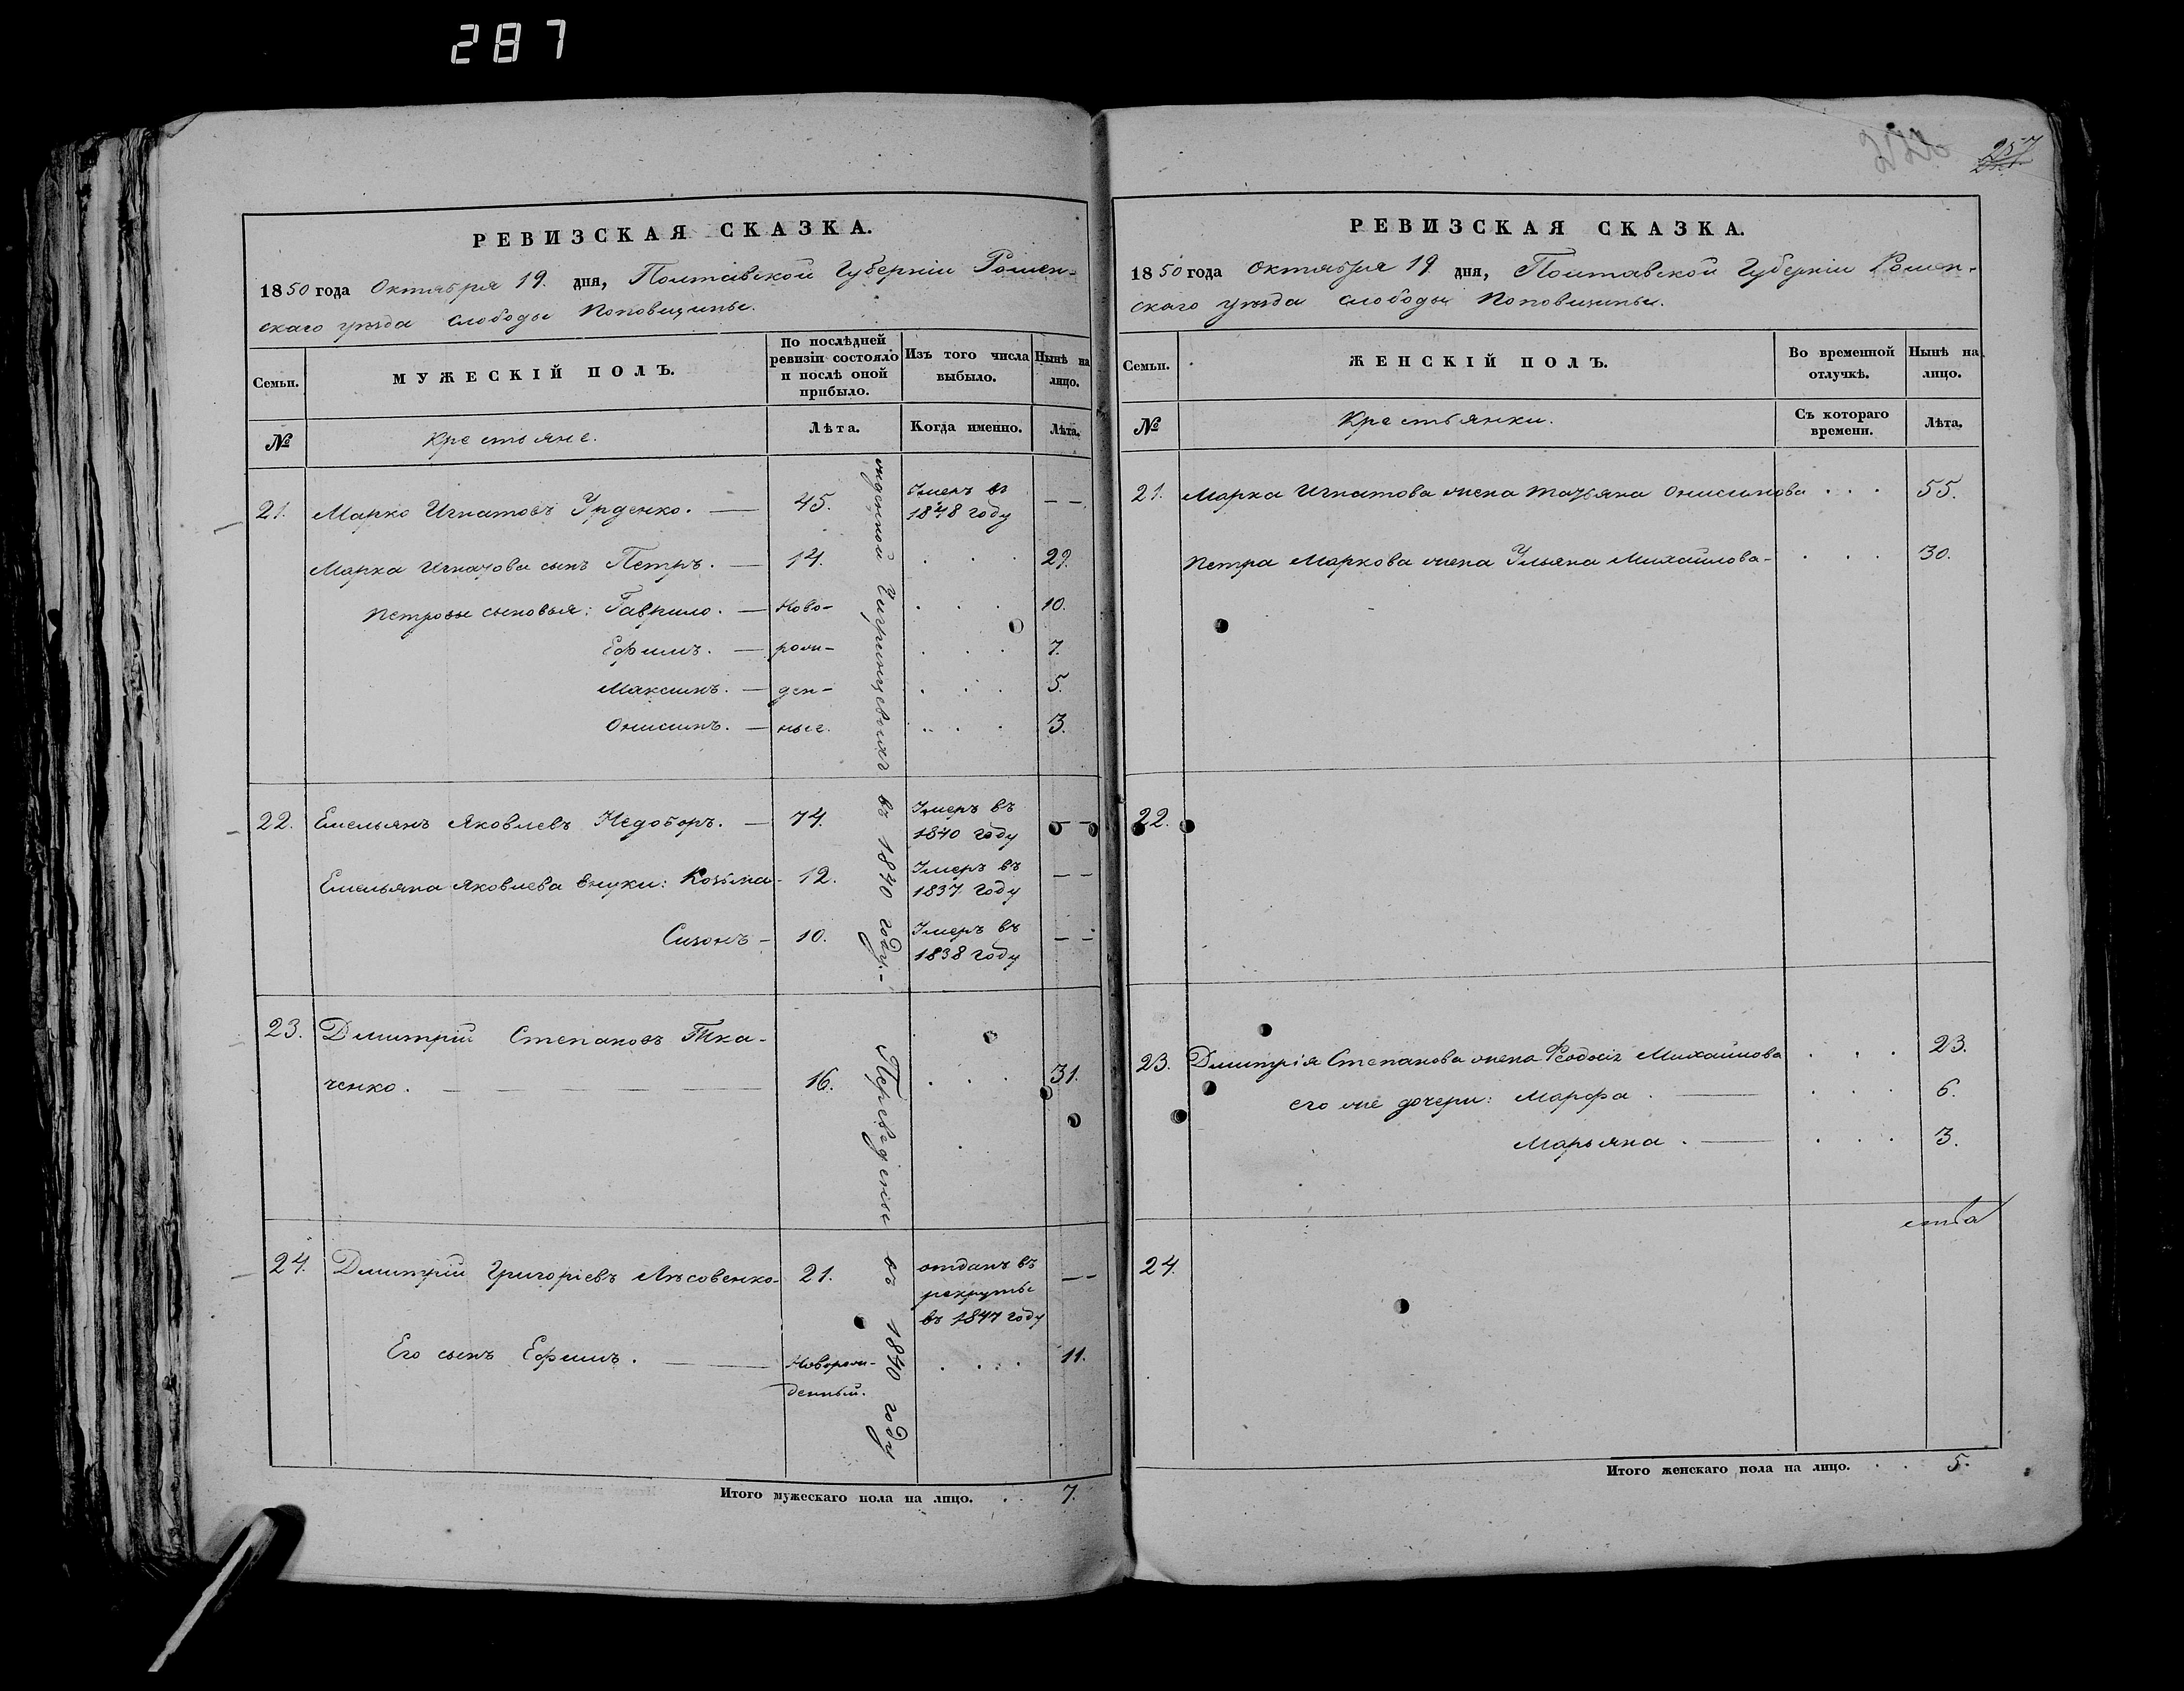 287
РЕВИЗСКАЯ СКАЗКА.
1850 года Октября 19. дня, Полтавской Губерніи Ромен-
скаго уѣзда слободы Поповщины.
Семьи.
МУЖЕСКІЙ ПОЛЪ.
По послѣдней ревизіи состояло и послѣ оной прибыло.
Изъ того числа выбыло.
Нынѣ на лицо.
№
Крестьяне.
Лѣта.
Когда именно.
Лѣта.
21. Марко Игнатовъ — 45. Умеръ въ 1848 году — —
Марка Игнатова сынъ Петръ. — 14. . . . 29.
Петровы сыновья: Гаврило. — Ново- . . . 10.
Ефимъ. — рож- . . . 7.
Максимъ. — ден- . . . 5.
Онисимъ. — ные. . . . 3.
22. Емельянъ Яковлевъ Недоборъ. — 74. Умеръ въ 1840 году — —
Емельяна Яковлева внуки: Козьма - 12. Умеръ въ 1837 году — —
Сизонъ - 10. Умеръ въ 1838 году — —
23. Дмитрій Степановъ Тка-
ченко. — 16. . . . 31.
24. Дмитрій Григорієвъ Лѣсовенко - 21. отданъ въ рекруты въ 1847 году — —
Его сынъ Ефимъ. — Новорож-
денный. . . . . 11.
Переведенные въ 1840 году
въ 1840 году. -
Итого мужескаго пола на лицо. . . 7.
257
РЕВИЗСКАЯ СКАЗКА.
1850 года Октября 19 дня, Полтавской Губерніи Ромен-
скаго уѣзда слободы Поповщины.
Семьи.
ЖЕНСКІЙ ПОЛЪ.
Во временной отлучкѣ.
Нынѣ на лицо.
№
Крестьянки.
Съ котораго времени.
Лѣта.
21. Марка Игнатова жена Татьяна Онисимова . . . 55.
Петра Маркова жена Ульяна Михайлова - . . . 30.
22.
23. Дмитрія Степанова жена Феодосія Михайлова . . . 23.
его же дочери: Марфа . — . . 6.
Марьяна . — . . . 3.
24.
Итого женскаго пола на лицо. . . 5.